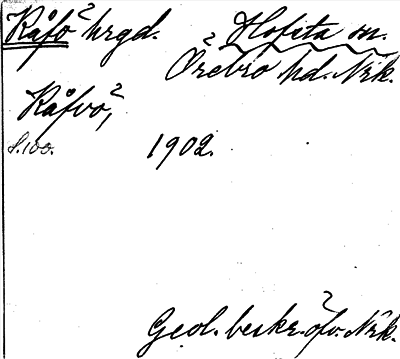 Råfö hrgd. Hofsta sn.
Örebro hd. Nrk.
Råfvö,
s. 100. 1902.
Geol. beskr. öfv. Nrk.